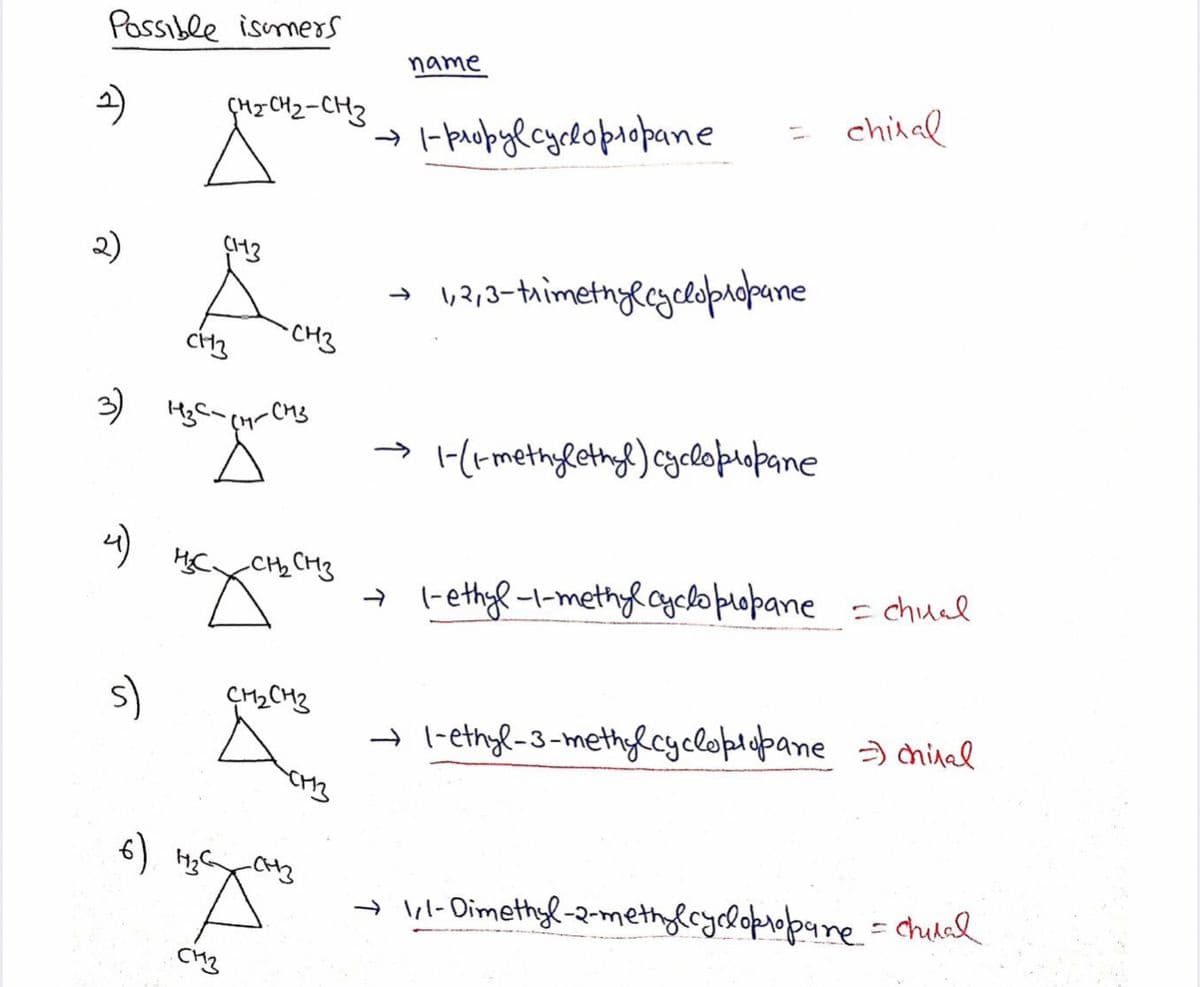 Possible isomers
name
1) CH2-CH2-CH3 → 1-propylcyclopropane = chiral
2) CH3
CH3 CH3 → 1,2,3-trimethylcyclopropane
3) H3C-CH-CH3 → 1-(1-methylethyl)cyclopropane
4) H3C CH2CH3 → 1-ethyl-1-methylcyclopropane = chiral
5) CH2CH3
CH3 → 1-ethyl-3-methylcyclopropane ⇒ chiral
6) H3C CH3 → 1,1-Dimethyl-2-methylcyclopropane = chiral
CH3